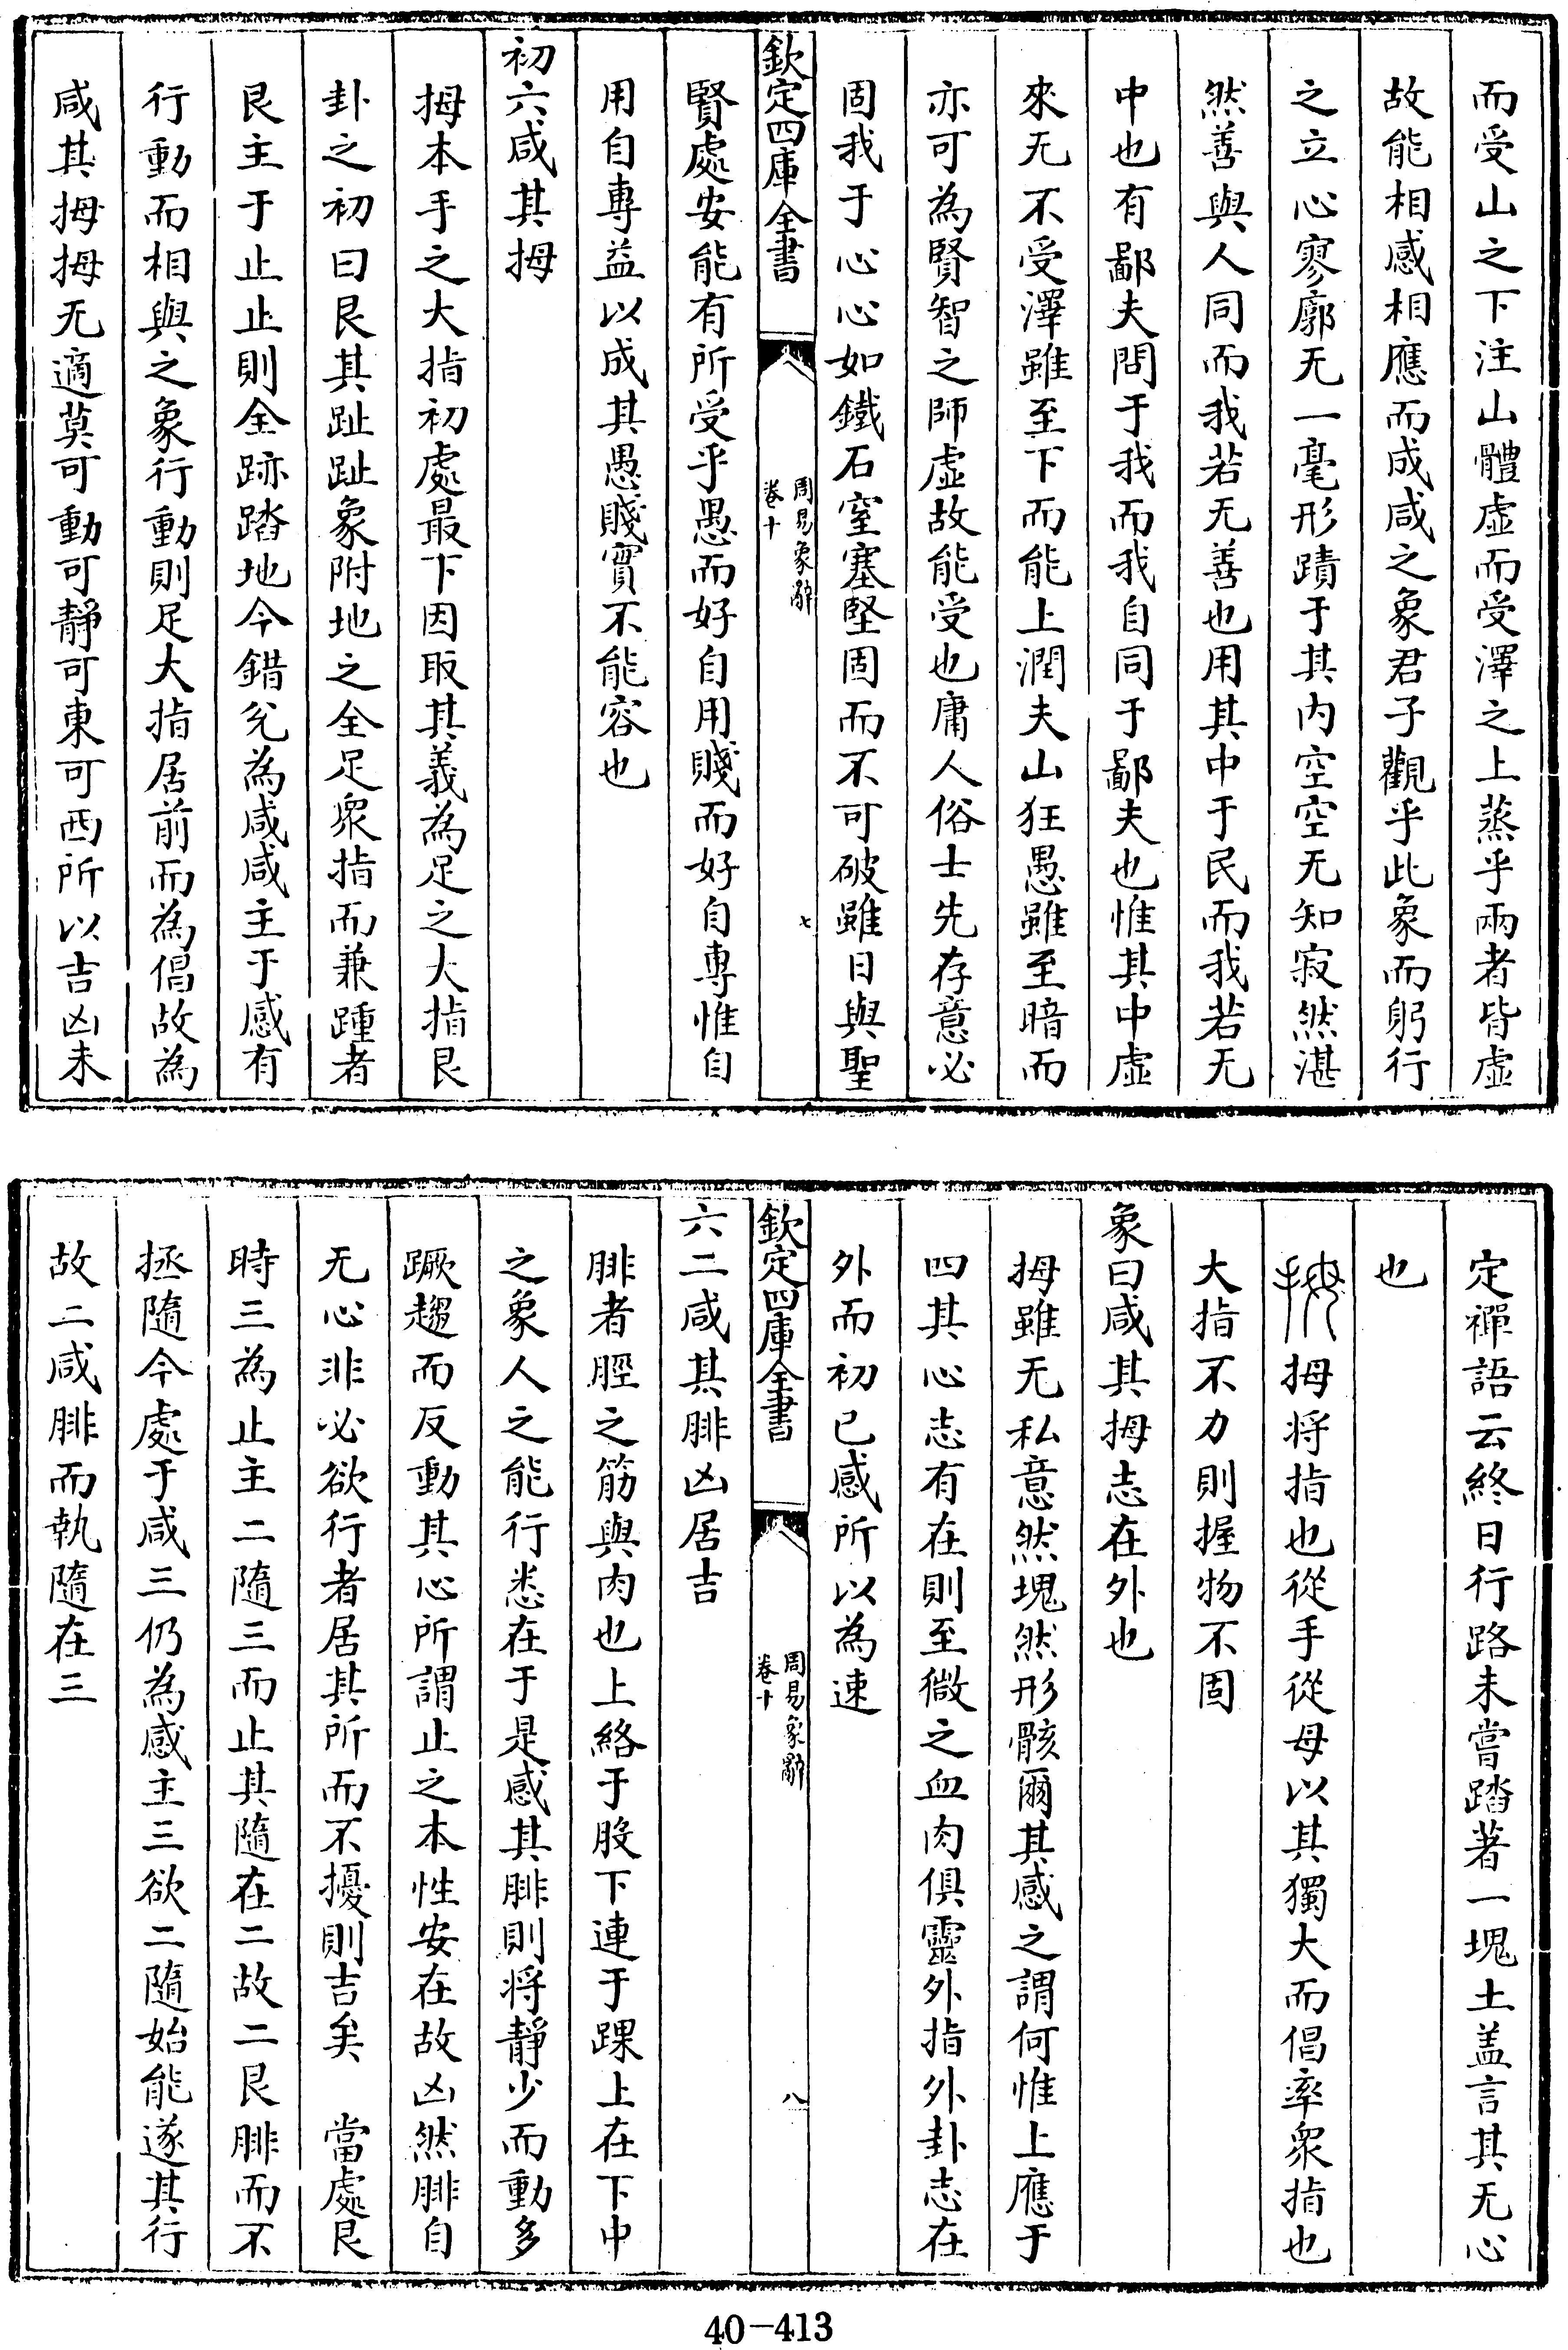 而受山之下注山體虛而受澤之上蒸乎兩者皆虛
故能相感相應而成咸之象君子觀乎此象而躬行
之立心寥廓无一毫形蹟于其内空空无知寂然湛
然善與人同而我若无善也用其中于民而我若无
中也有鄙夫問于我而我自同于鄙夫也惟其中虛
來无不受澤雖至下而能上潤夫山狂愚雖至暗而
亦可為賢智之師虛故能受也庸人俗士先存意必
固我于心心如鐵石窒塞堅固而不可破雖日與聖
欽定四庫全書
周易象辭
卷十
七
賢處安能有所受乎愚而好自用賤而好自專惟自
用自專益以成其愚賤實不能容也
初六咸其拇
拇本手之大指初處最下因取其義為足之大指艮
卦之初曰艮其趾趾象附地之全足衆指而兼踵者
艮主于止止則全跡踏地今錯兊為咸咸主于感有
行動而相與之象行動則足大指居前而為倡故為
咸其拇拇无適莫可動可靜可東可西所以吉凶未
定禪語云終日行路未嘗踏著一塊土盖言其无心
也
拇將指也從手從母以其獨大而倡率衆指也
大指不力則握物不固
象曰咸其拇志在外也
拇雖无私意然塊然形骸爾其感之謂何惟上應于
四其心志有在則至微之血肉俱靈外指外卦志在
外而初已感所以為速
欽定四庫全書
周易象辭
卷十
八
六二咸其腓凶居吉
腓者脛之筋與肉也上絡于股下連于踝上在下中
之象人之能行悉在于是感其腓則将靜少而動多
蹶趨而反動其心所謂止之本性安在故凶然腓自
无心非必欲行者居其所而不擾則吉矣　當處艮
時三為止主二隨三而止其隨在二故二艮腓而不
拯隨今處于咸三仍為感主三欲二隨始能遂其行
故二咸腓而執隨在三
40-413